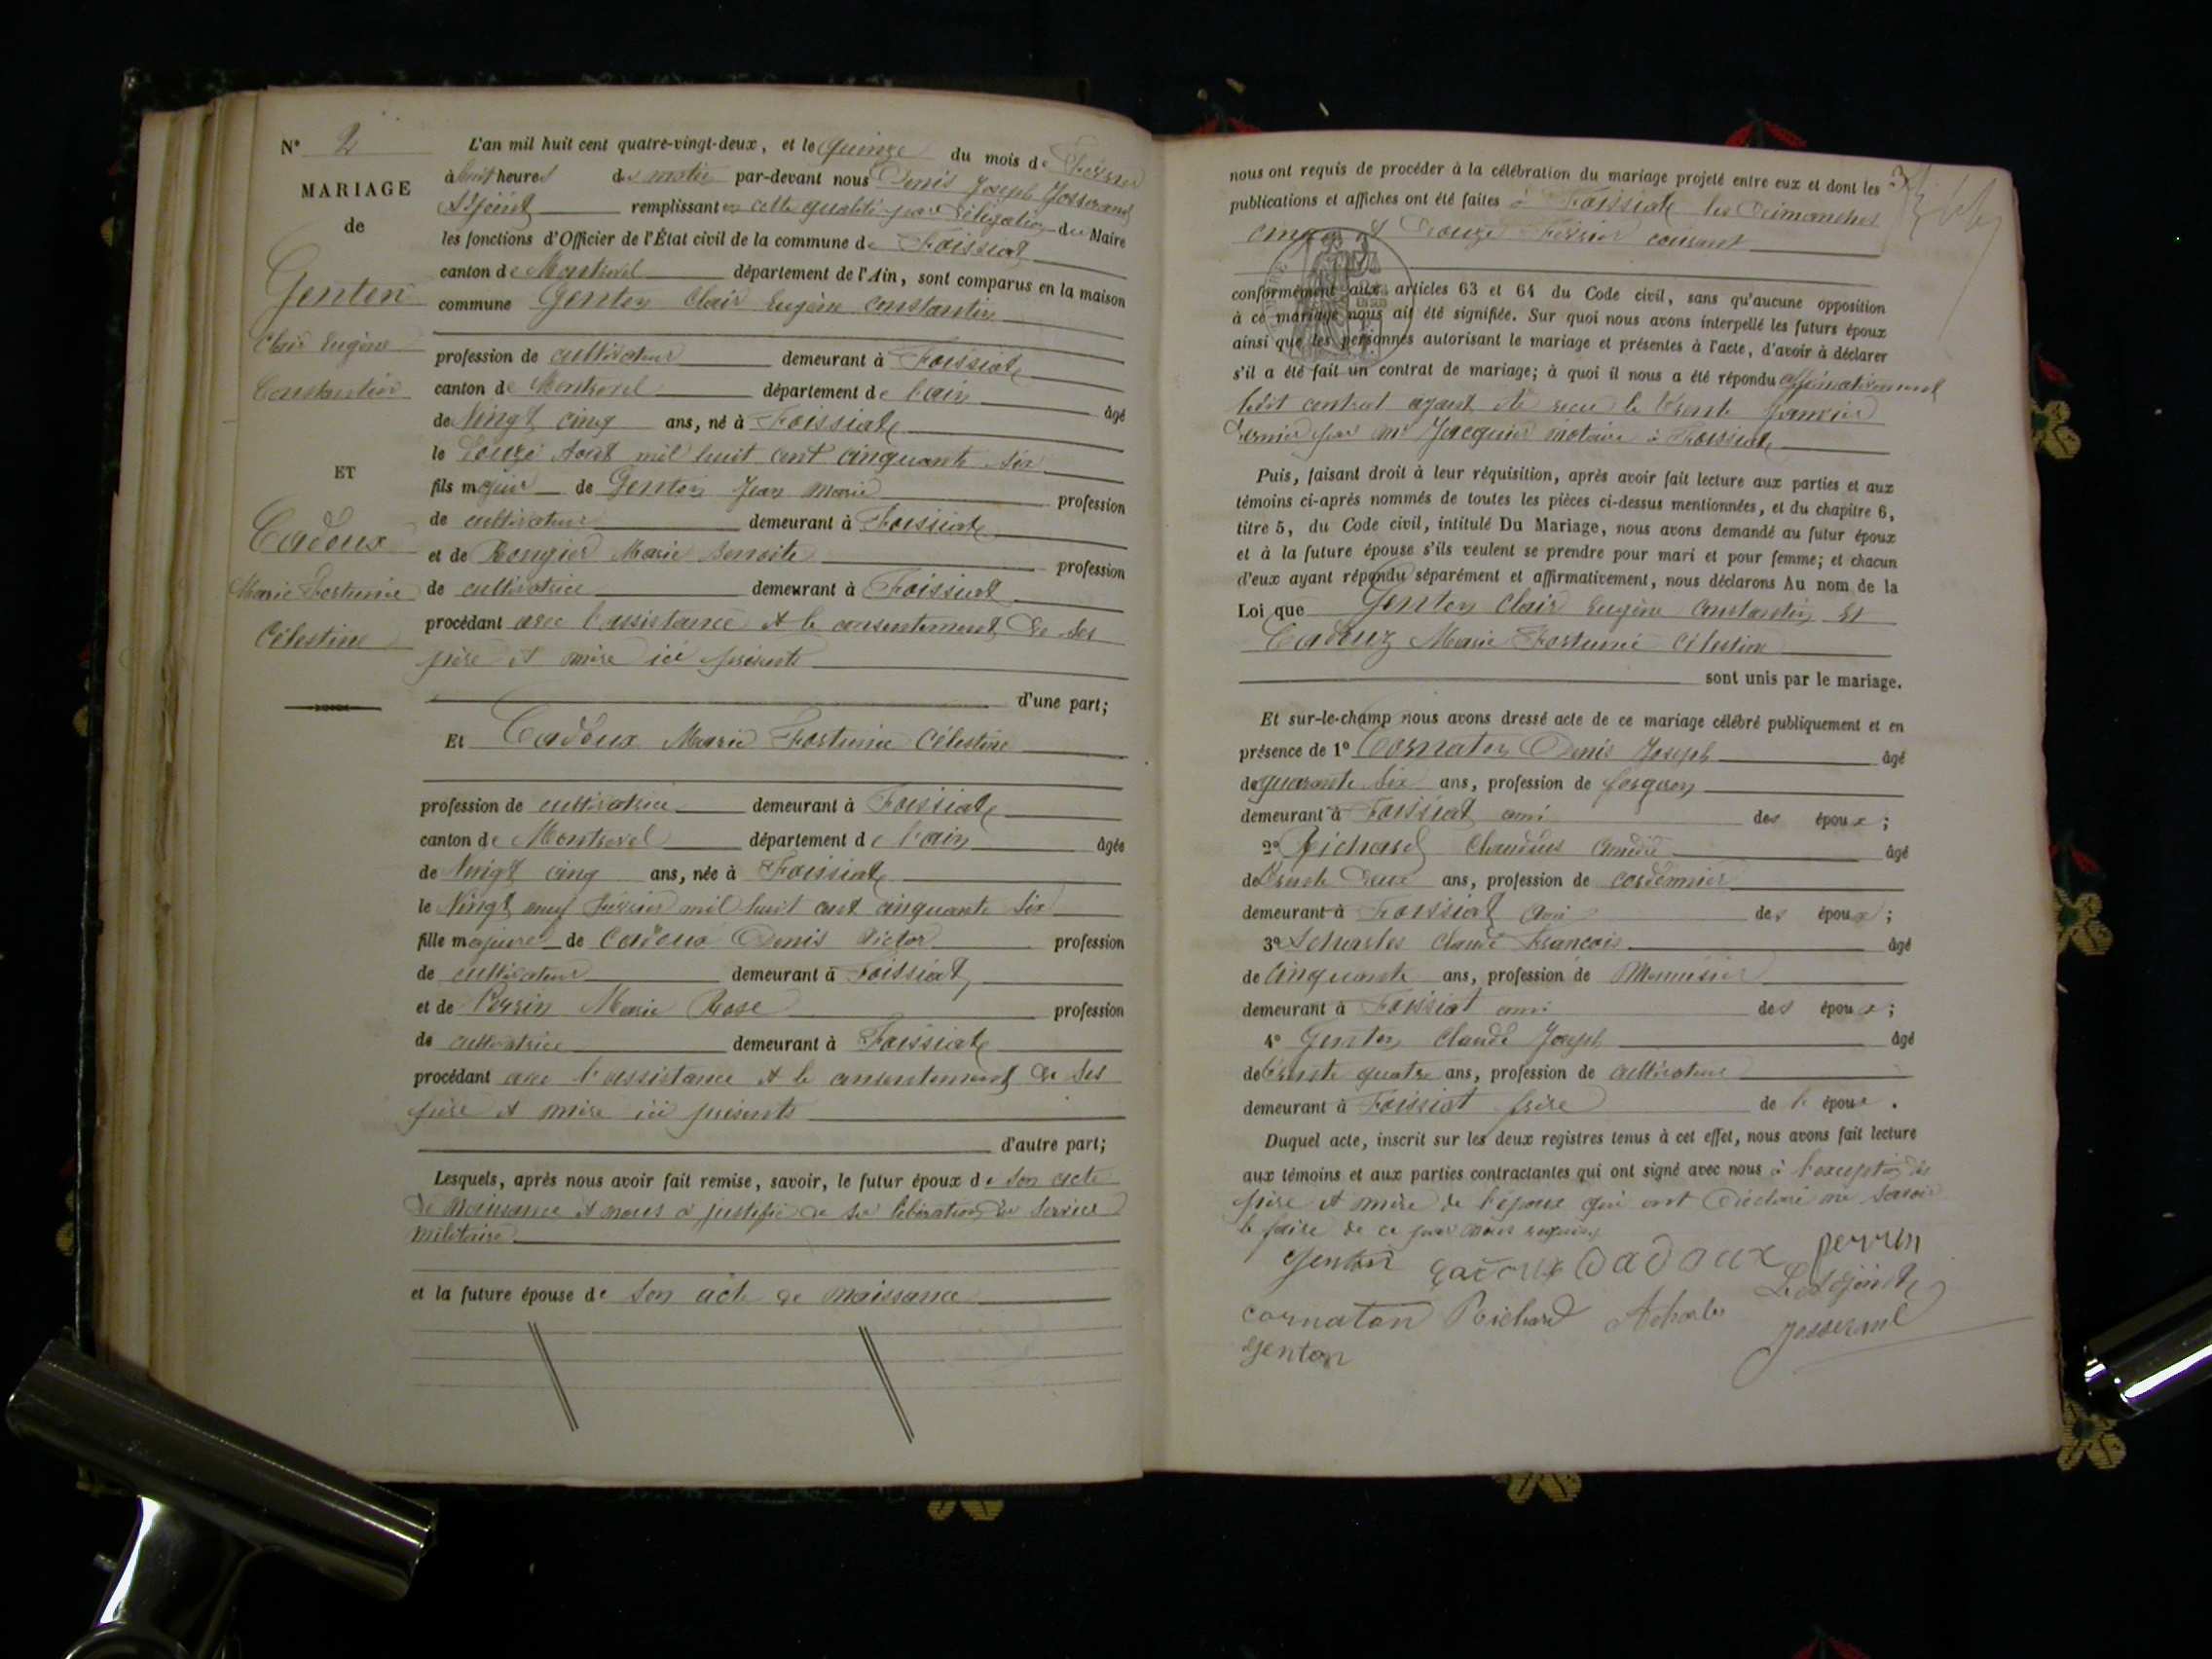 N° 2
MARIAGE
de
Genton
Clair Eugène
Constantin
ET
Cadoux
Marie Fortunée
Célestine
L'an mil huit cent quatre-vingt-deux, et le quinze du mois de Février
à huit heures du matin par-devant nous Denis Joseph Josserand
Adjoint remplissant en cette qualité par délégation du Maire
les fonctions d'Officier de l'État civil de la commune de Foissiat
canton de Montrevel département de l'Ain, sont comparus en la maison
commune Genton Clair Eugène Constantin
profession de cultivateur demeurant à Foissiat
canton de Montrevel département de l'ain âgé
de Vingt cinq ans, né à Foissiat
le douze Aout mil huit cent cinquante six
fils majeur de Genton Jean Marie profession
de cultivateur demeurant à Foissiat
et de Rongier Marie Benoite profession
de cultivatrice demeurant à Foissiat
procédant avec l'assistance et le consentement de ses
père et mère ici présents
d'une part;
Et Cadoux Marie Fortunée Célestine
profession de cultivatrice demeurant à Foissiat
canton de Montrevel département de l'ain âgée
de Vingt cinq ans, née à Foissiat
le Vingt neuf Février mil huit cent cinquante six
fille majeure de Cadoux Denis Victor profession
de cultivateur demeurant à Foissiat
et de Perrin Marie Rose profession
de cultivatrice demeurant à Foissiat
procédant avec l'assistance et le consentement de ses
père et mère ici présents
d'autre part;
Lesquels, après nous avoir fait remise, savoir, le futur époux de son acte
de Naissance et nous a justifié de sa libération du Service
militaire
et la future épouse de son acte de naissance
nous ont requis de procéder à la célébration du mariage projeté entre eux et dont les
publications et affiches ont été faites à Foissiat les Dimanches
cinq et douze Février courant
conformément aux articles 63 et 64 du Code civil, sans qu'aucune opposition
à ce mariage nous ait été signifiée. Sur quoi nous avons interpellé les futurs époux
ainsi que les personnes autorisant le mariage et présentes à l'acte, d'avoir à déclarer
s'il a été fait un contrat de mariage; à quoi il nous a été répondu affirmativement
ledit contrat ayant été reçu le trente janvier
dernier par Me Jacquier notaire à Foissiat
Puis, faisant droit à leur réquisition, après avoir fait lecture aux parties et aux
témoins ci-après nommés de toutes les pièces ci-dessus mentionnées, et du chapitre 6,
titre 5, du Code civil, intitulé Du Mariage, nous avons demandé au futur époux
et à la future épouse s'ils veulent se prendre pour mari et pour femme; et chacun
d'eux ayant répondu séparément et affirmativement, nous déclarons Au nom de la
Loi que Genton Clair Eugène Constantin Et
Cadoux Marie Fortunée Célestine
sont unis par le mariage.
Et sur-le-champ nous avons dressé acte de ce mariage célébré publiquement et en
présence de 1° Cornaton Denis Joseph âgé
de quarante Six ans, profession de forgeron
demeurant à Foissiat ami des époux;
2° Richard Claudius âgé
de trente deux ans, profession de cordonnier
demeurant à Foissiat ami des époux;
3° Claude François âgé
de Cinquante ans, profession de Menuisier
demeurant à Foissiat ami des époux;
4° Genton Claude Joseph âgé
de trente quatre ans, profession de cultivateur
demeurant à Foissiat frère de l'époux.
Duquel acte, inscrit sur les deux registres tenus à cet effet, nous avons fait lecture
aux témoins et aux parties contractantes qui ont signé avec nous à l'exception des
père et mère de l'époux qui ont déclaré ne savoir
le faire de ce par nous requis
Genton Cadoux Cadoux perrin
L'adjoint
cornaton Richard Josserand
Genton